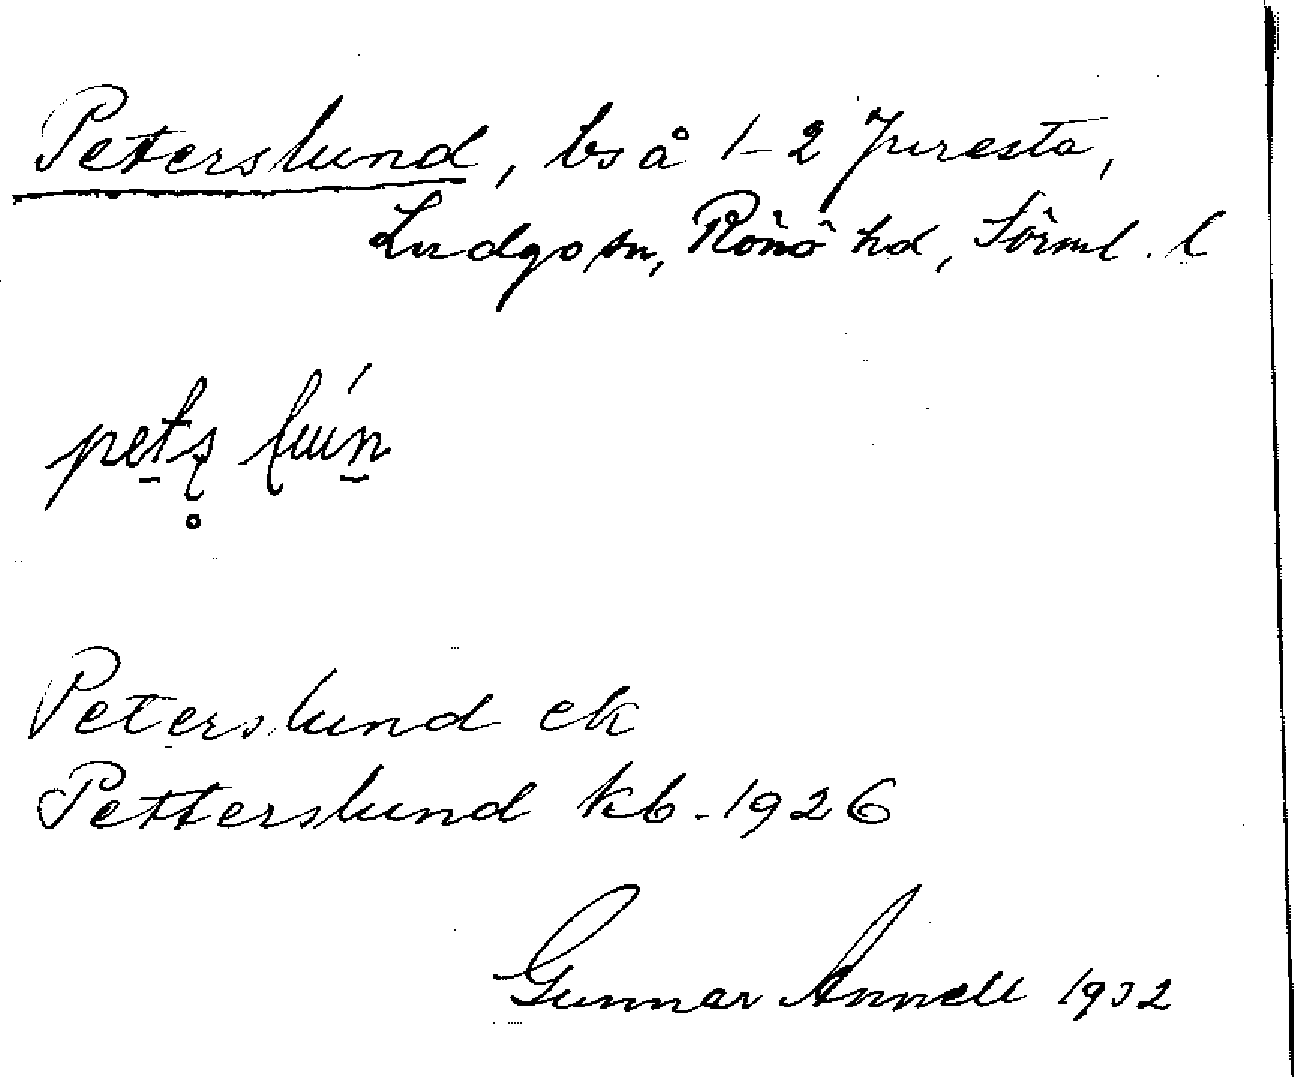 Peterslund, bs å 1-2 Juresta,
Ludgo sn, Rönö hd,Örml. l
Peterslund ek
Petterslund kb-1926
Gunnar Annell 1932